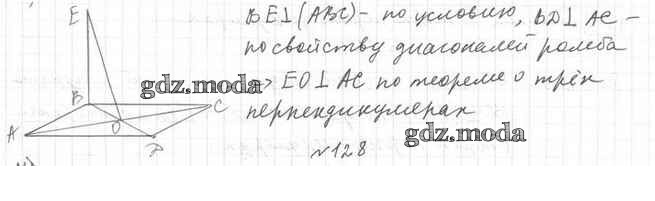 E
BE⊥(ABC) - по условию, BD⊥AC -
по свойству диагоналей ромба
=> EO⊥AC по теореме о трёх
перпендикулярах
gdz.moda
gdz.moda
B
C
A
O
D
№128